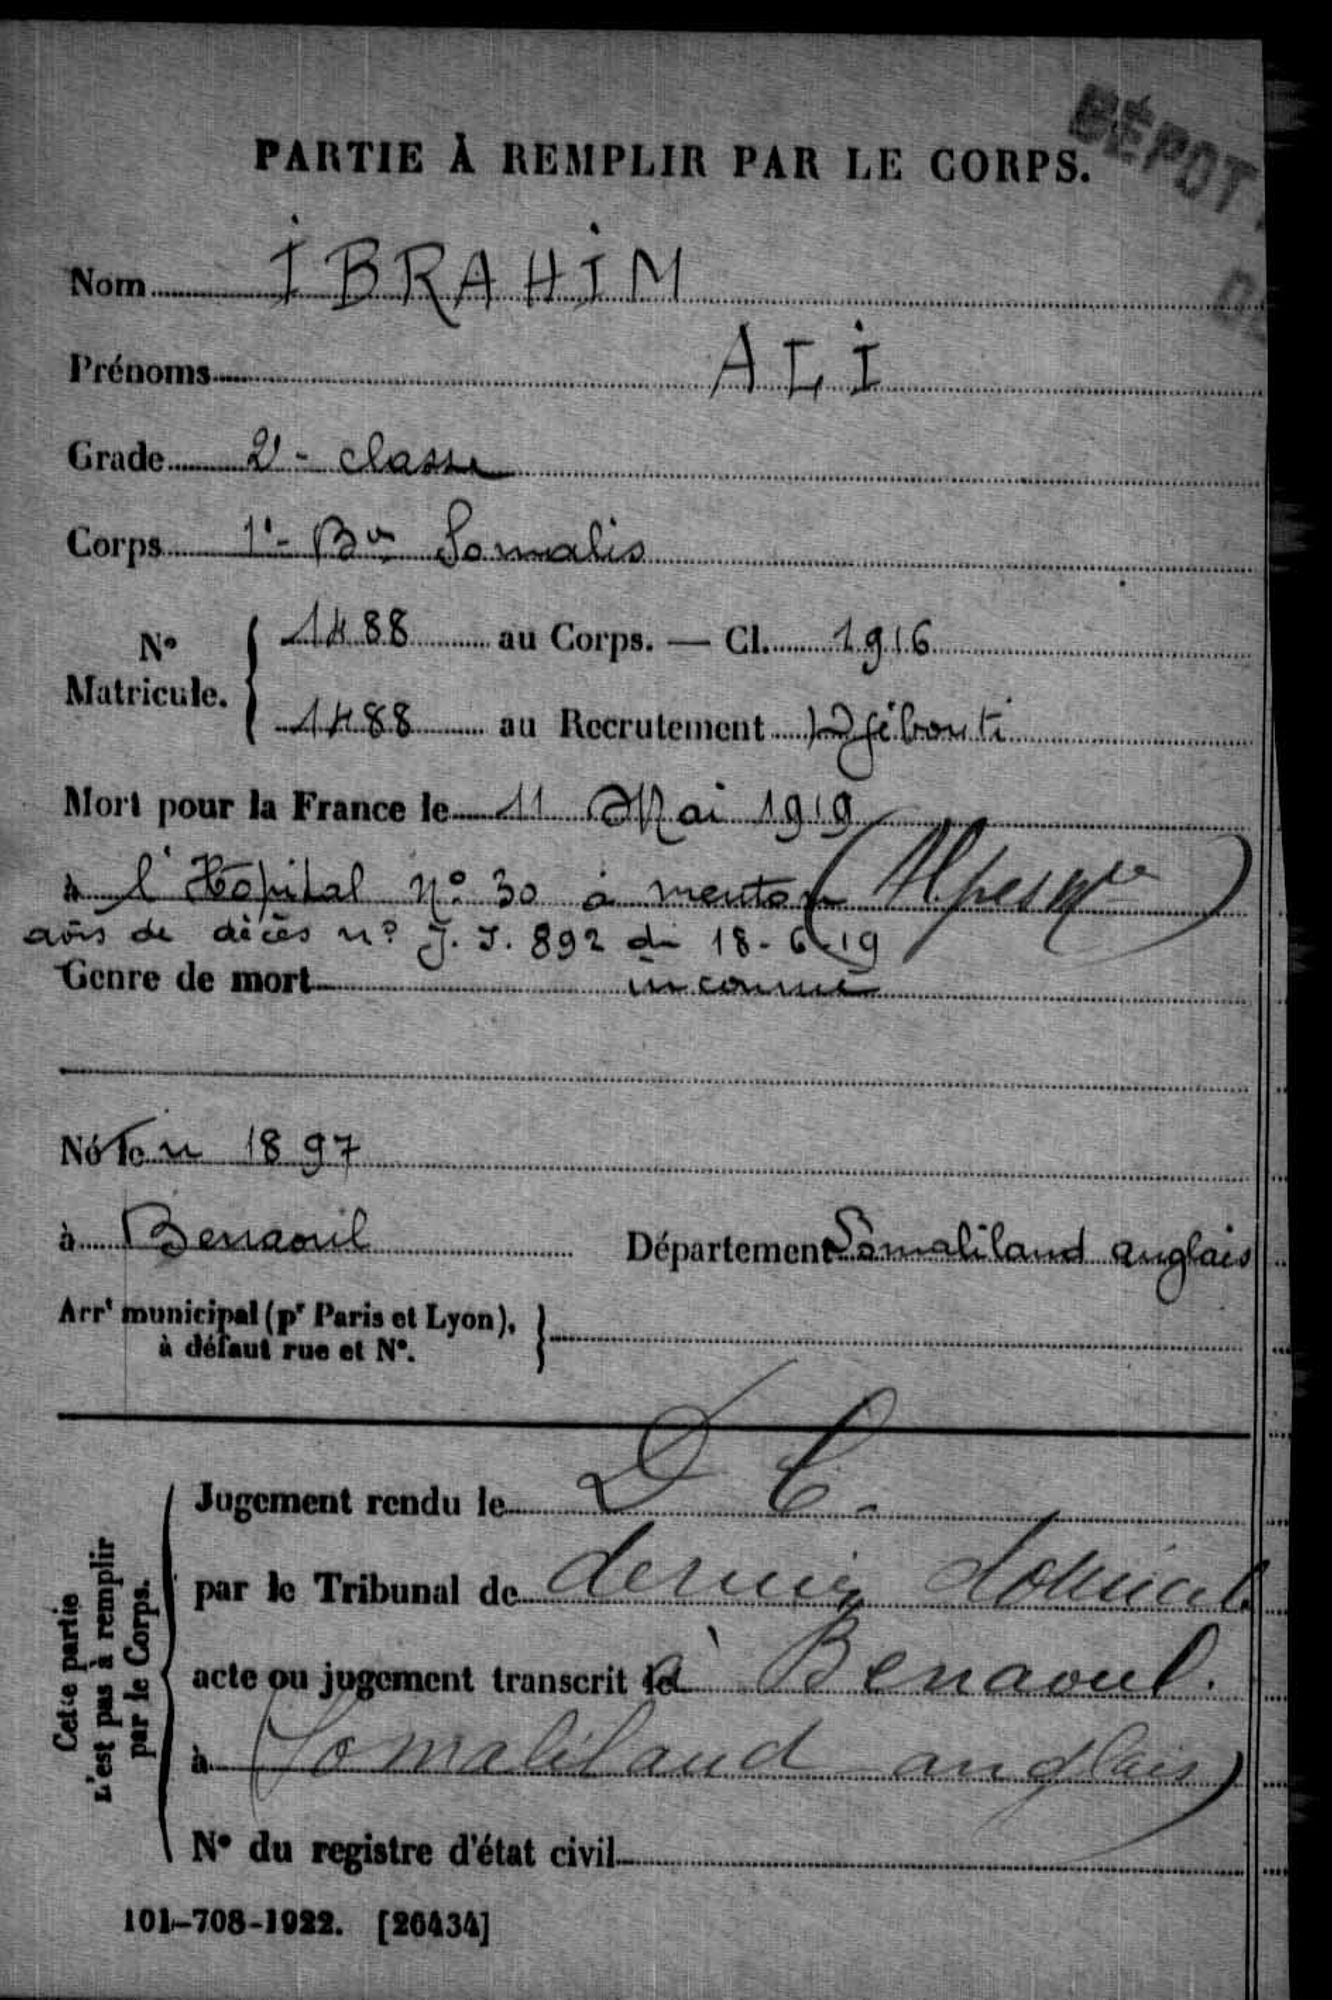 DÉPOT
PARTIE À REMPLIR PAR LE CORPS.
Nom IBRAHIM
Prénoms ALI
Grade 2e - classe
Corps 1er - Bon Somalis
No Matricule. 1488 au Corps. — Cl. 1916
1488 au Recrutement Djibouti
Mort pour la France le 11 Mai 1919
à l'Hôpital No 30 à menton (Alpes Mmes)
avis de décès no J.J. 892 du 18-6-19
Genre de mort inconnu
Né en 1897
à Benaouil Département Somaliland anglais
Arrt municipal (pr Paris et Lyon),
à défaut rue et No.
Cette partie
n'est pas à remplir
par le Corps.
Jugement rendu le D C.
par le Tribunal de dernier domicile
acte ou jugement transcrit le à Benaoul.
à (Somaliland anglais)
No du registre d'état civil
101-708-1922. [26434]